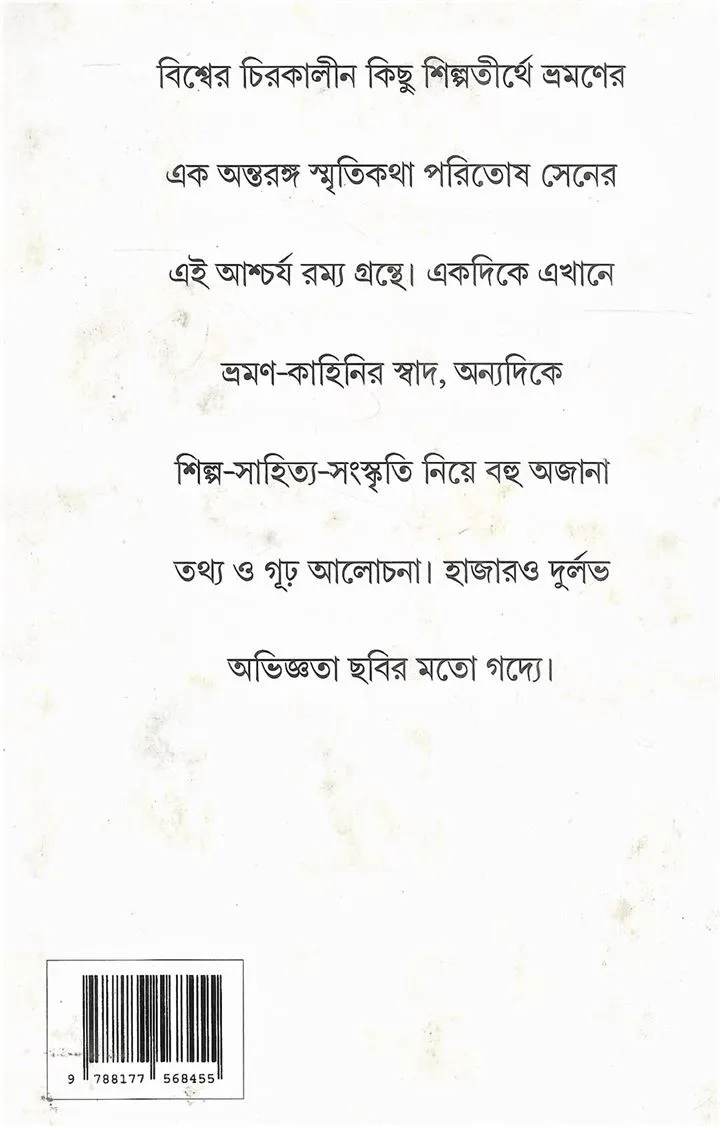 বিশ্বের চিরকালীন কিছু শিল্পতীর্থে ভ্রমণের
এক অন্তরঙ্গ স্মৃতিকথা পরিতোষ সেনের
এই আশ্চর্য রম্য গ্রন্থে। একদিকে এখানে
ভ্রমণ-কাহিনির স্বাদ, অন্যদিকে
শিল্প-সাহিত্য-সংস্কৃতি নিয়ে বহু অজানা
তথ্য ও গূঢ় আলোচনা। হাজারও দুর্লভ
অভিজ্ঞতা ছবির মতো গদ্যে।
9 788177 568455